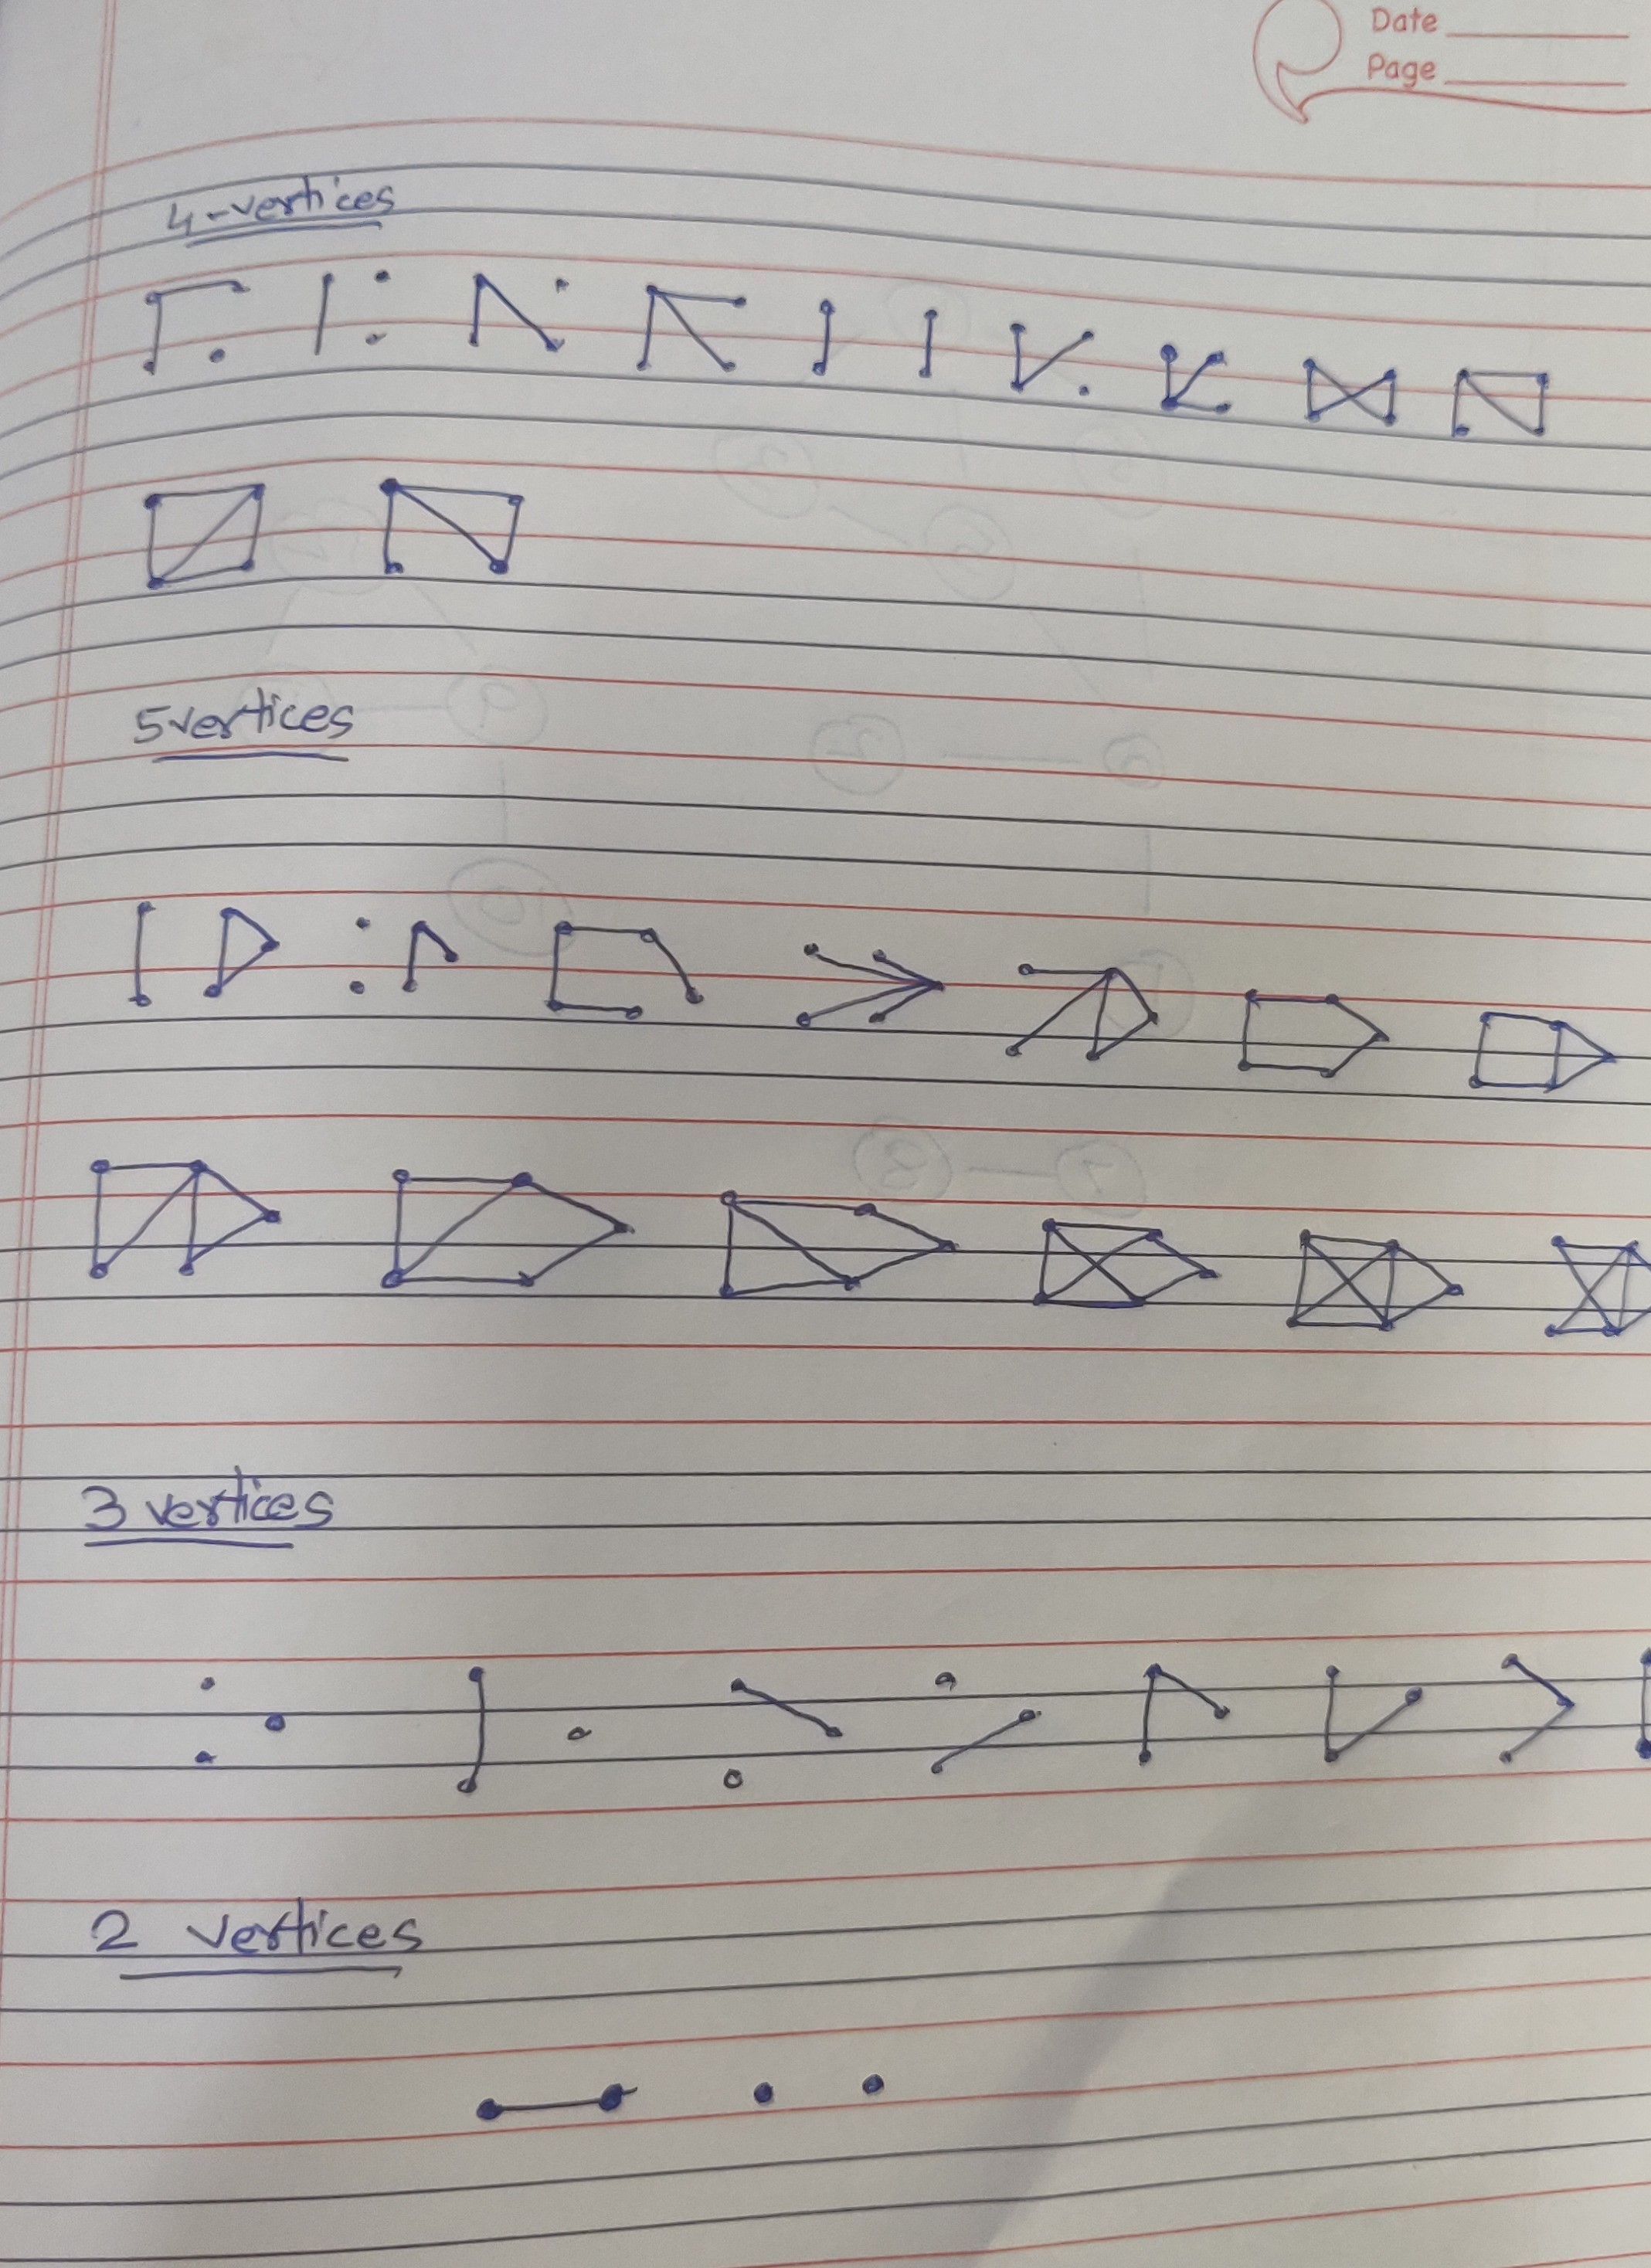 Date
Page
4-vertices
5 vertices
3 vertices
2 vertices